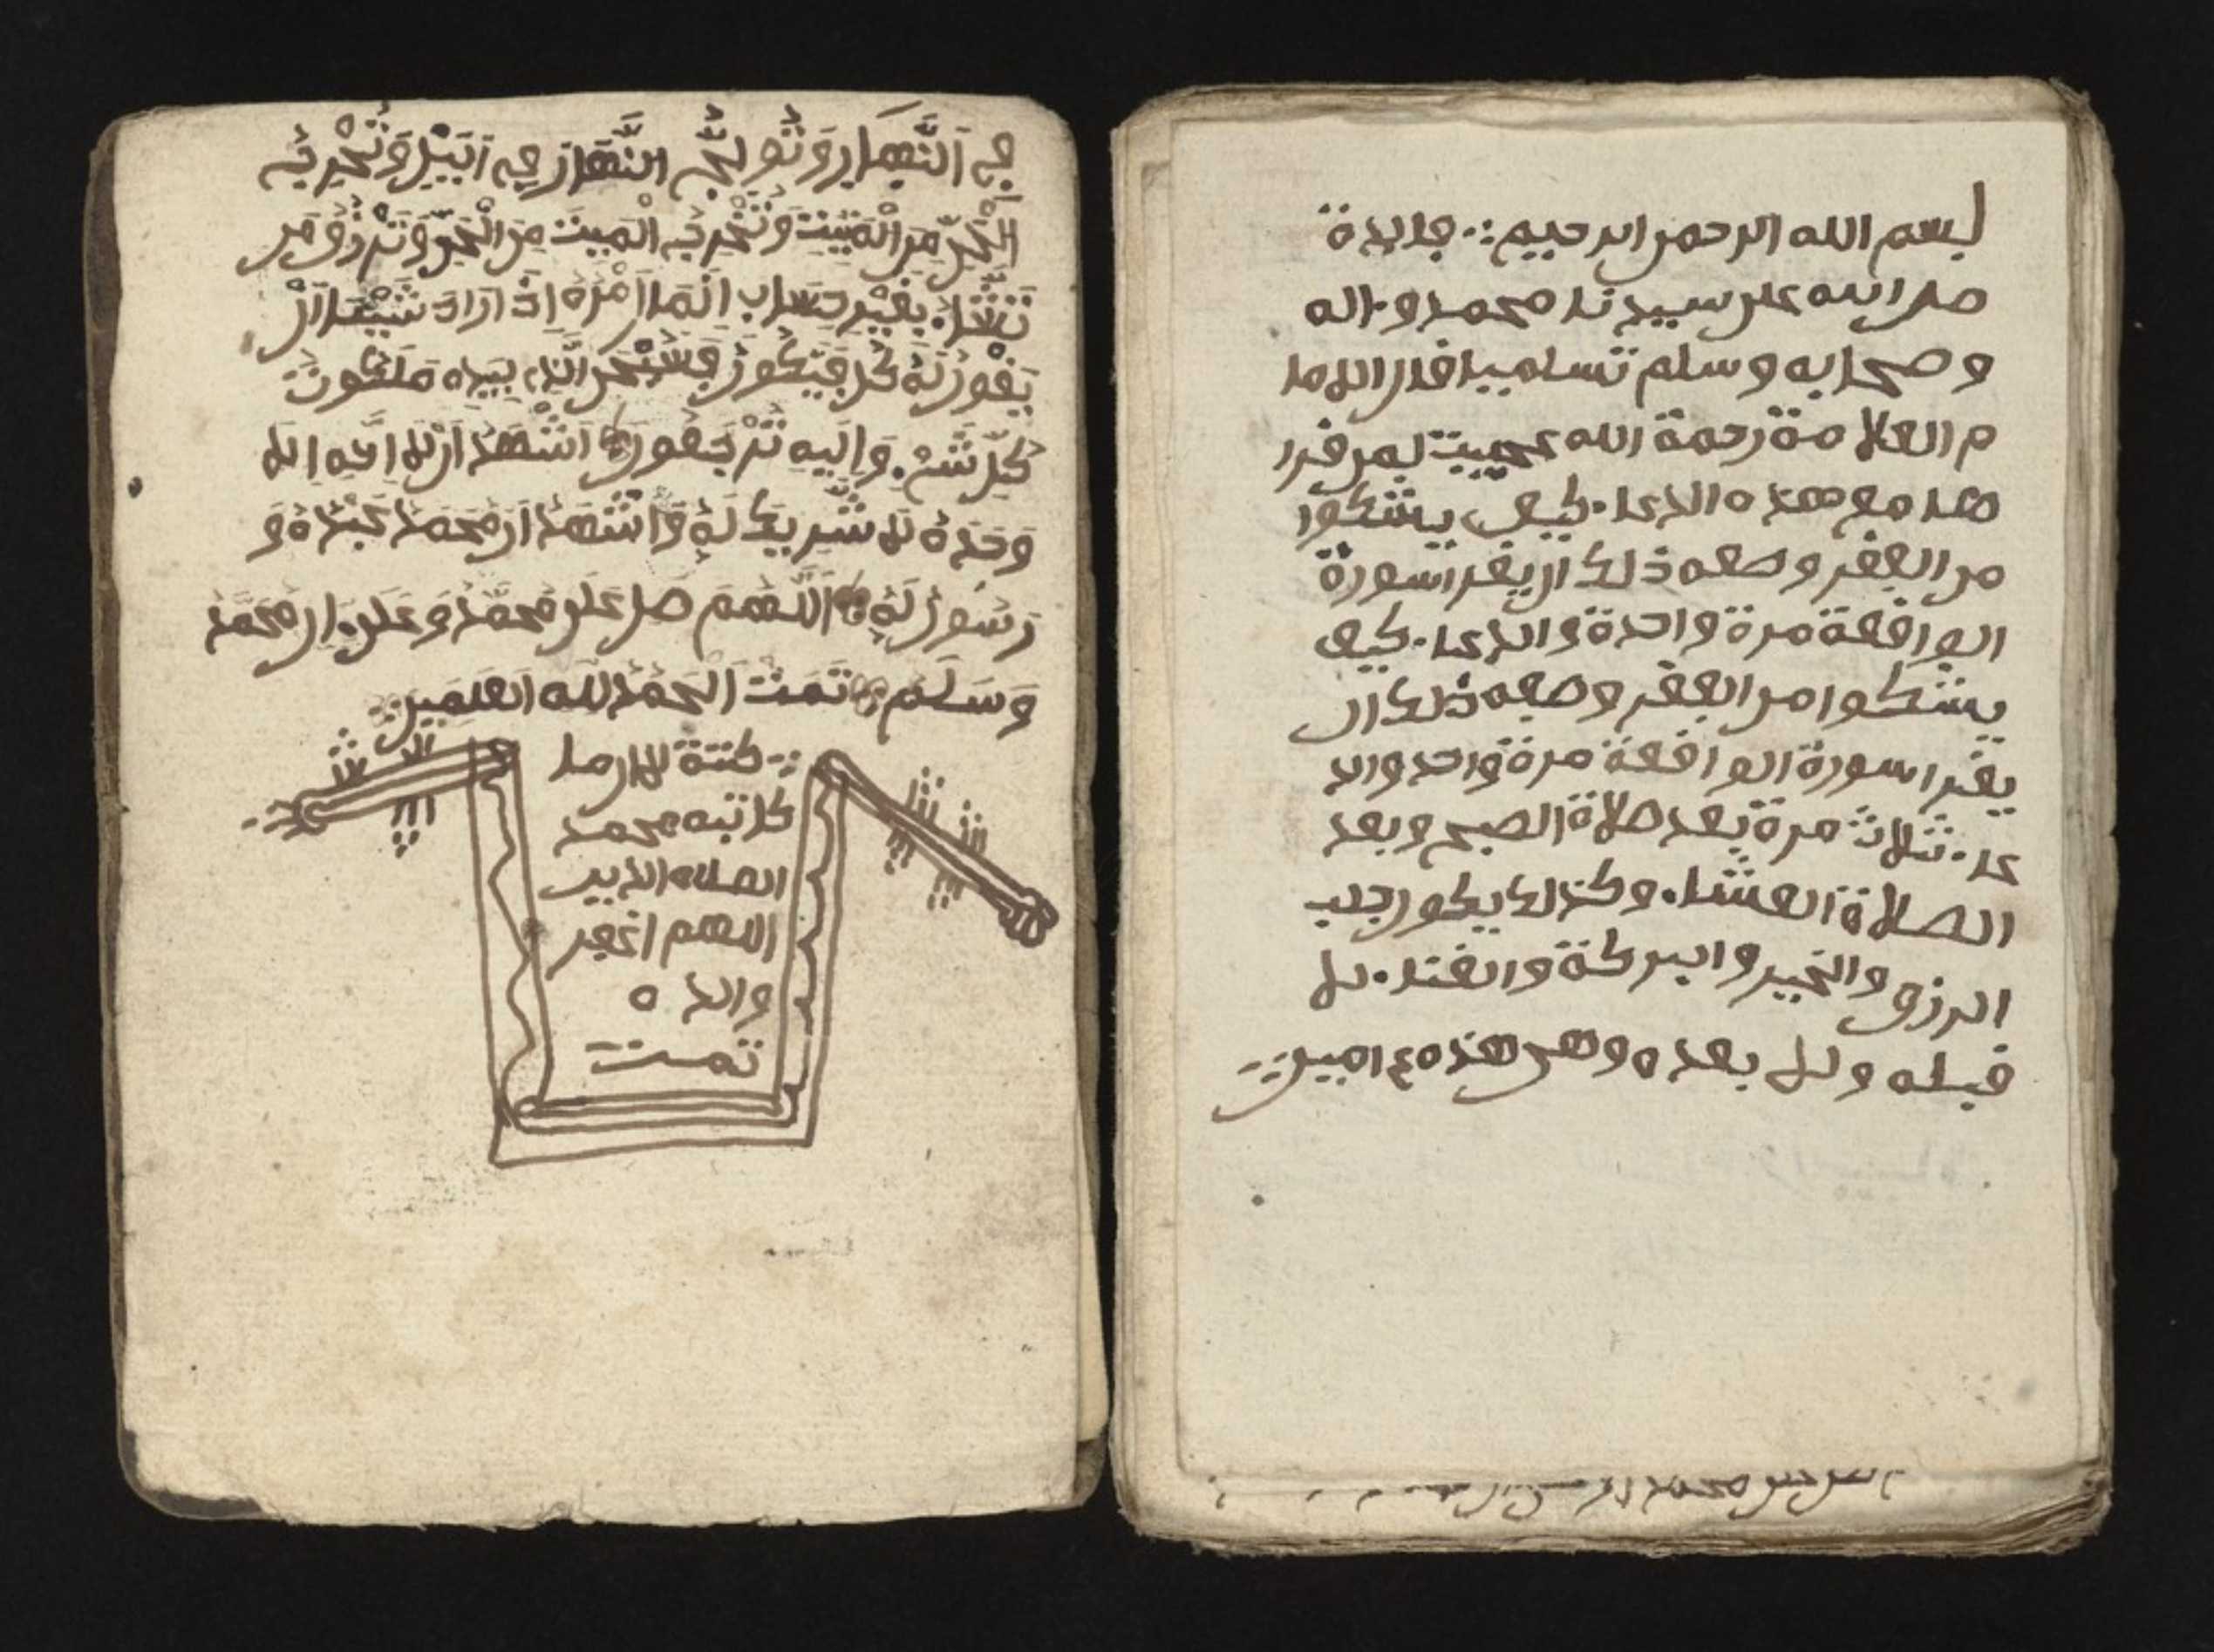 بسم الله الرحمن الرحيم فايدة
صلى الله على سيدنا محمد وءاله
وصحابه وسلم تسليما قال الاما
م العلامة رحمة الله عجيبت لمن قرا
هذا مع هذه الدعاء كيف يشكوا
من الفقر وصفه ذلك ان يقرا سورة
الواقعة مرة واحدة والدعاء كيف
يشكوا من الفقر وصفه ذلك ان
يقرا سورة الواقعة مرة واحد والد
عاء ثلاث مرة بعد صلاة الصبح وبعد
الصلاة العشاء وكذلك يكون جلب
الرزق والخير والبركة والغناء لا
قبله ولا بعده وهي هذه امين
محمد
فِي اَلنَّهَارِ وَتُولِجُ النَّهَارَ فِي اَلَيْلِ وَتُخْرِجُ
اَلْحَيَّ مِنَ الْمَيِّتِ وَتُخْرِجُ الْمَيِّتَ مِنَ الْحَيِّ وَتَرْزُقُ مَن
تَشَاءُ بِغَيْرِ حِسَابٍ اِنَّمَا أَمْرُهُ إِذَ اَرَادَ شَيْئًا اَنْ
يَقُولَ لَهُ كُن فَيَكُونُ فَسُبْحَنَ الَّذِي بِيَدِهِ مَلَكُوتُ
كُلِّ شَيْءٍ وَإِلَيْهِ تُرْجَعُونَ اَشْهَدُ اَن لَا اِلَهَ اِلا
وَحْدَهُ لَا شَرِيكَ لَهُ وَاَشْهَدُ اَن مُحَمَدًا عَبْدُهُ وَ
رَسُولُهُ اَللَّهُمَ صَلِ عَلَى مُحَمَّدٍ وَعَلَى ءَالِ مُحَمَّدٍ
وَسَلَّم تَمَتْ اَلْحَمْدُ لِلَّه الْعَلَمِين
كتبة
كاتبه محمد
اللهم اغفر
والده
تمت